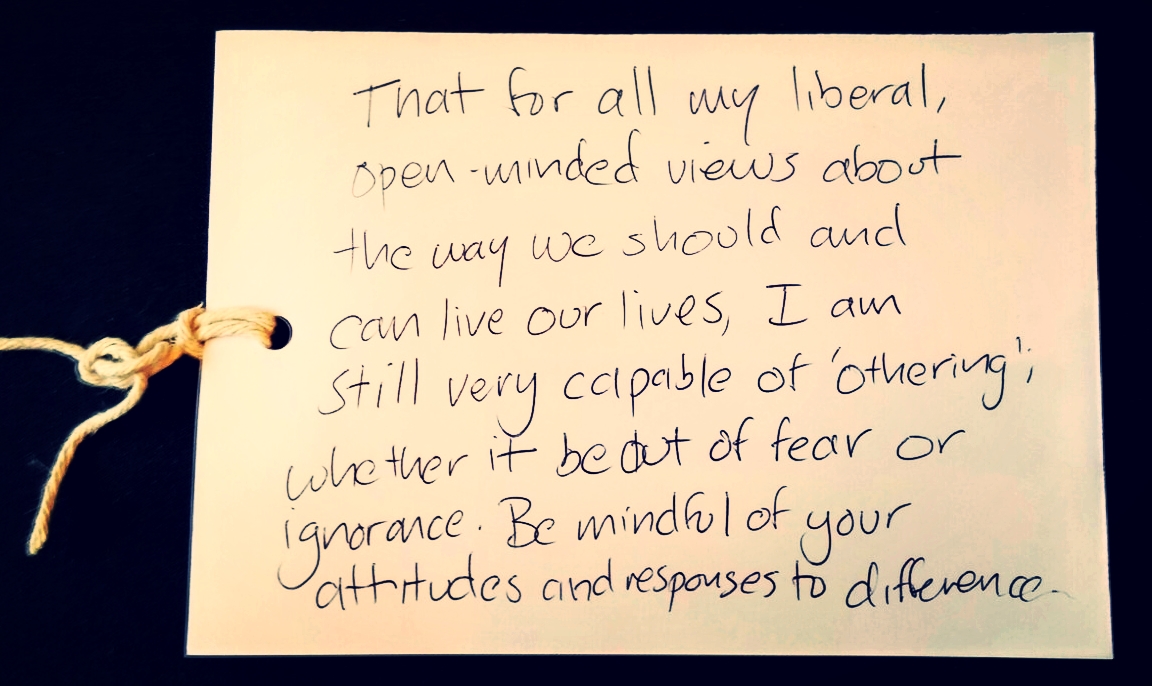 That for all my liberal,
open-minded views about
the way we should and
can live our lives, I am
still very capable of 'othering';
whether it be out of fear or
ignorance. Be mindful of your
attitudes and responses to difference.